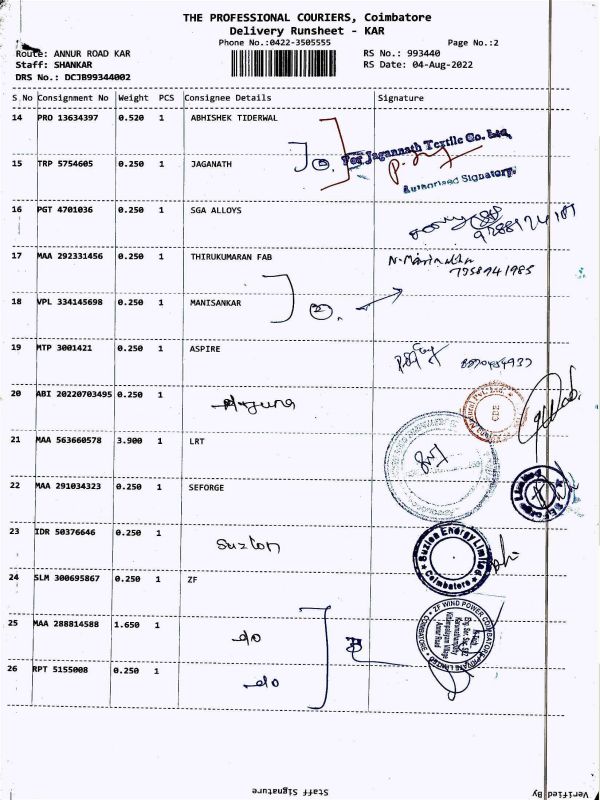 THE PROFESSIONAL COURIERS, Coimbatore
Delivery Runsheet - KAR
Phone No.:0422-3505555 Page No.:2
Route: ANNUR ROAD KAR RS No.: 993440
Staff: SHANKAR RS Date: 04-Aug-2022
DRS No.: DCJB99344002
S No Consignment No Weight PCS Consignee Details Signature
14 PRO 13634397 0.520 1 ABHISHEK TIDERWAL
For Jagannath Textile Co. Ltd,
15 TRP 5754605 0.250 1 JAGANATH
Authorised Signatory.
16 PGT 4701036 0.250 1 SGA ALLOYS
17 MAA 292331456 0.250 1 THIRUKUMARAN FAB
7958941985
18 VPL 334145698 0.250 1 MANISANKAR 2.
19 MTP 3001421 0.250 1 ASPIRE
20 ABI 20220703495 0.250 1 Arjuna
21 MAA 563660578 3.900 1 LRT
22 MAA 291034323 0.250 1 SEFORGE
23 IDR 50376646 0.250 1 Suzlon
Suzlon Energy Limited
Coimbatore
24 SLM 300695867 0.250 1 ZF
ZF WIND POWER COIMBATORE PRIVATE LIMITED
25 MAA 288814588 1.650 1 do
26 RPT 5155008 0.250 1 do
Staff Signature Verified By